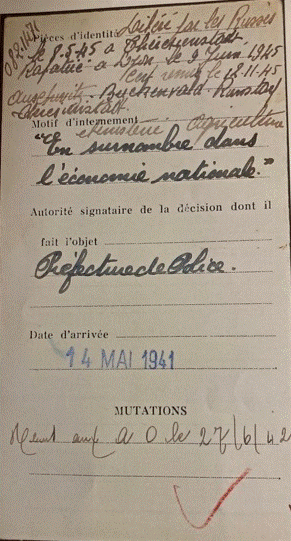 Pièces d'identité Libéré par les Russes
le 8.5.45 à Theresienstadt
Rapatrié à Lyon le 2 Juin 1945
le 12.11.45
Auschwitz. Buchenwald
Theresienstadt
Motif d'internement
Ministère Agriculture
"En surnombre dans
l'économie nationale."
Autorité signataire de la décision dont il
fait l'objet
Préfecture de Police.
Date d'arrivée
14 MAI 1941
MUTATIONS
à O le 27/6/42